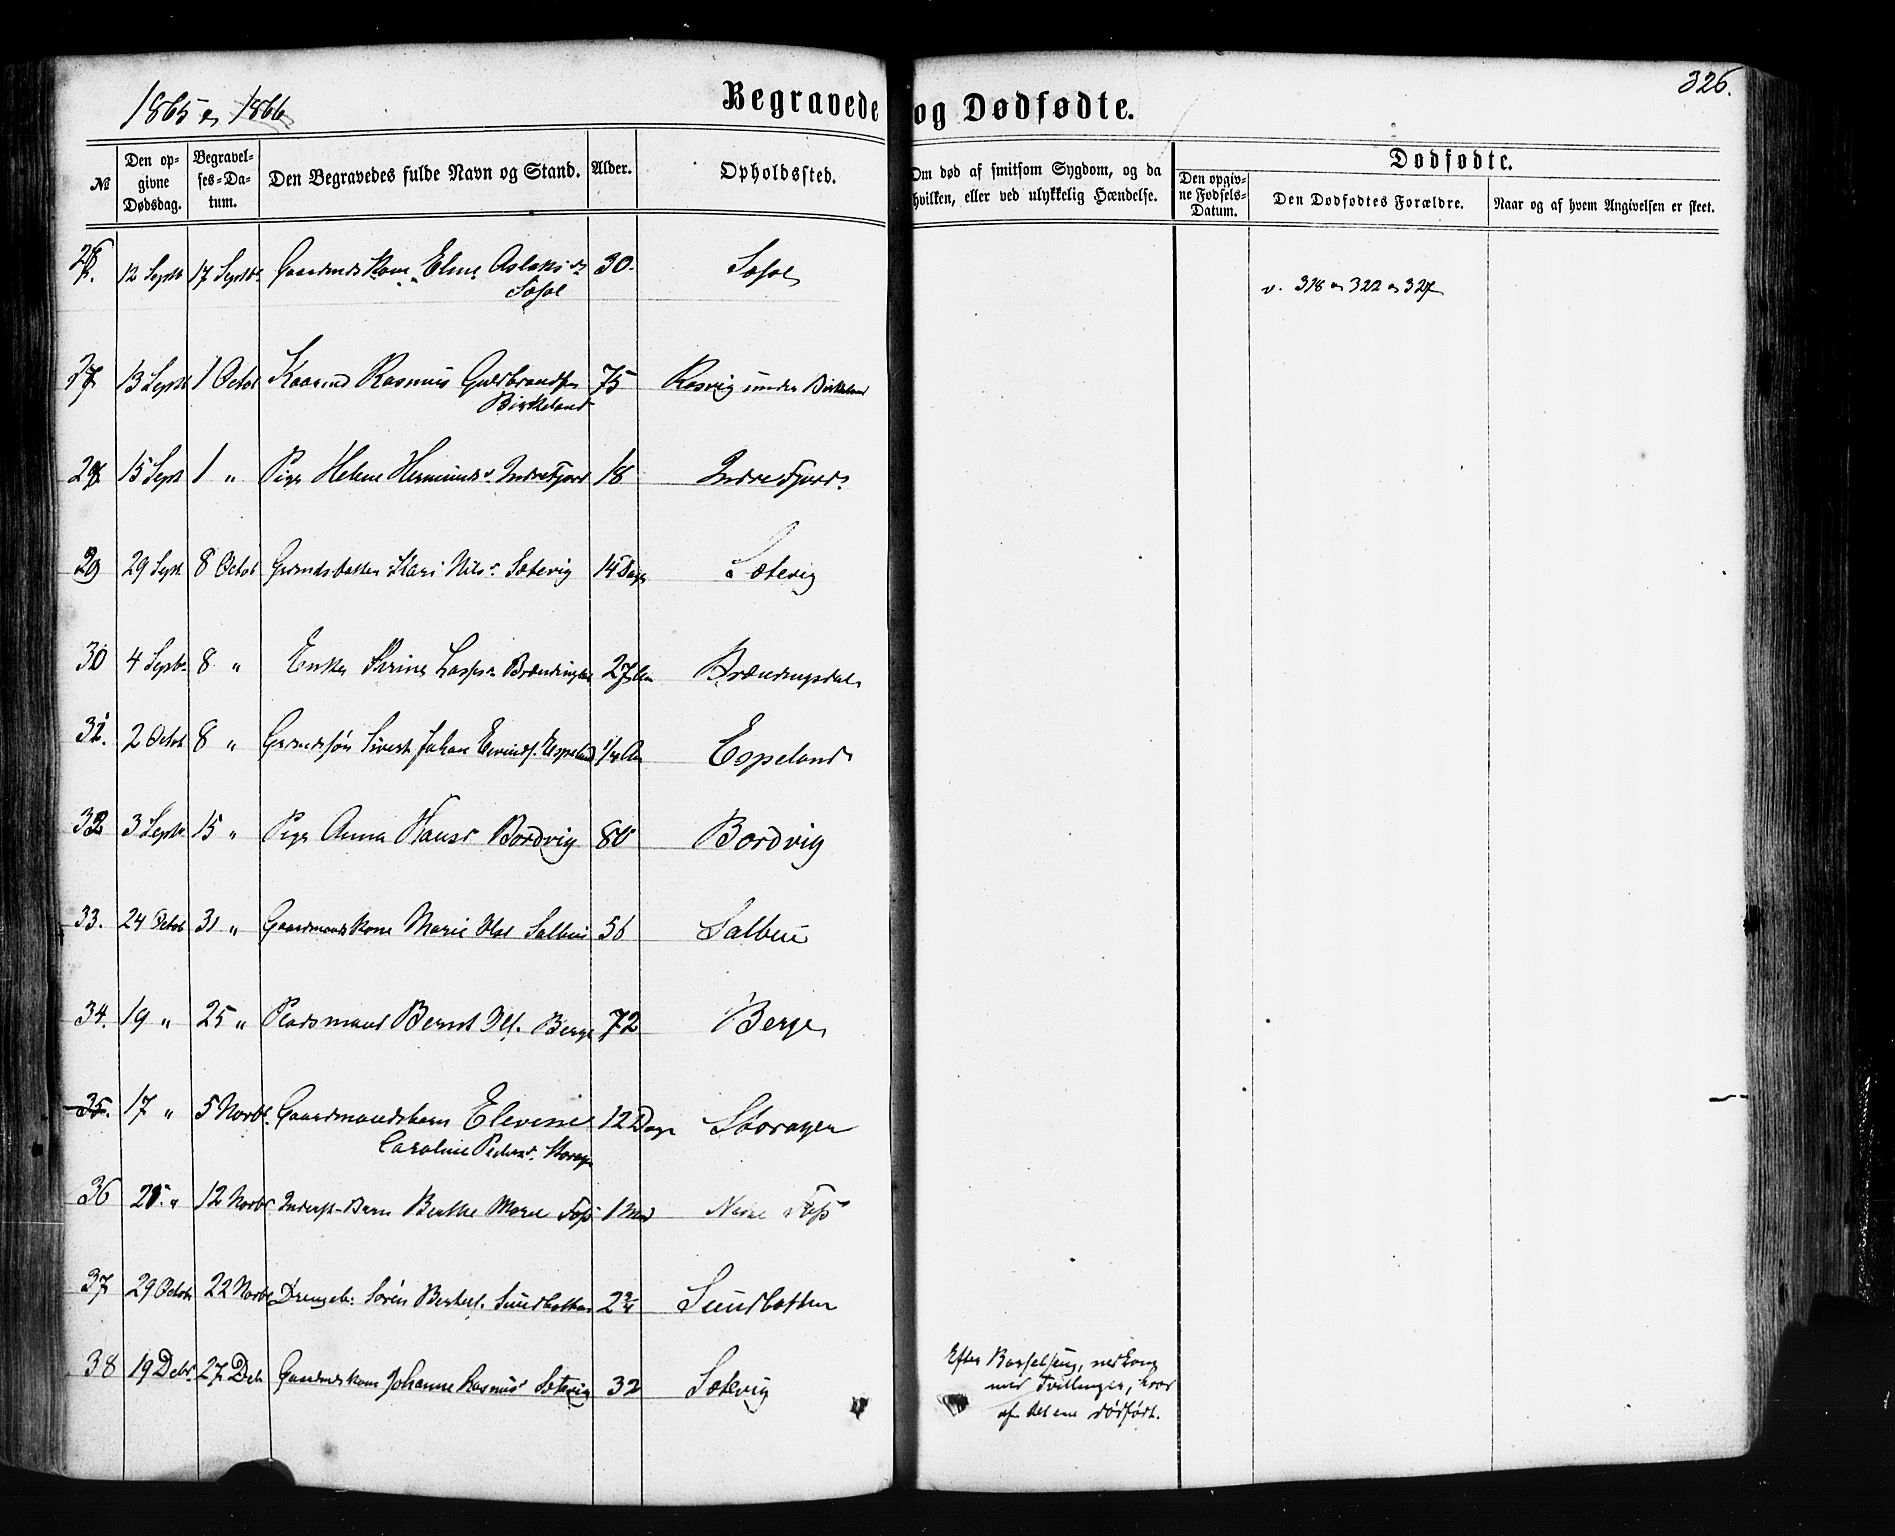 1865 & 1866
Begravede og Dødfødte.
326.
№
Den opgivne Dødsdag.
Begravelses-Datum.
Den Begravedes fulde Navn og Stand.
Alder.
Opholdssted.
Om død af smitsom Sygdom, og da hvilken, eller ved ulykkelig Hændelse.
Dødfødte.
Den opgivne Fødsels-Datum.
Den Dødfødtes Forældre.
Naar og af hvem Angivelsen er skeet.
26. 12 Septb 17 Septb. Gaardmds Kone Aslaksd 30.
v. 318 & 322 & 327
27 13 Septb 1 Octob Kaarmd Rasmus Guldbrands. 75 Rosvig under Birkeland
Birkeland
28 15 Septb 1 " Pige Helene Hermunds. Indrefjord 18 Indrefjord.
29 29 Sept 8 Octob Kari Nilsd. Sætevig 14 Dage Sætevig
30 4 Septb. 8 " Enke 27 Brændingsdal
31. 2 Octob 8 " Gaardmdssøn Sivert Johan Eivinds. Espeland Espeland
32 3 Septb 15 " Pige Anna Hansd Bordvig 80 Bordvig
33. 24 Octob 31 " Gaardmands Kone Marie Olsd Salbue 56 Salbue
34. 19 " 25 " Pladsmand Bernt Ols. Berge 72 Berge
35. 17 " 5 Novbr. Gaardmandsbarn Elevine 12 Dage Storøyen
Caroline Pedersd. Storøyen
36 " 12 Novbr Inderst-Barn Berthe Marie Foss 1 Md Nedre Foss
37 29 Octob 22 Novbr Drengeb. Søren Berthels. Sundbotten 2 3/4 Sundbotten
38 19 Debr. 27 Deb Gaardmds Kone Johanne Rasmusd Sætevig 32 Sætevig
Efter Barselseng, nedkom
med Tvillinger, hvor
af det ene dødfødt.